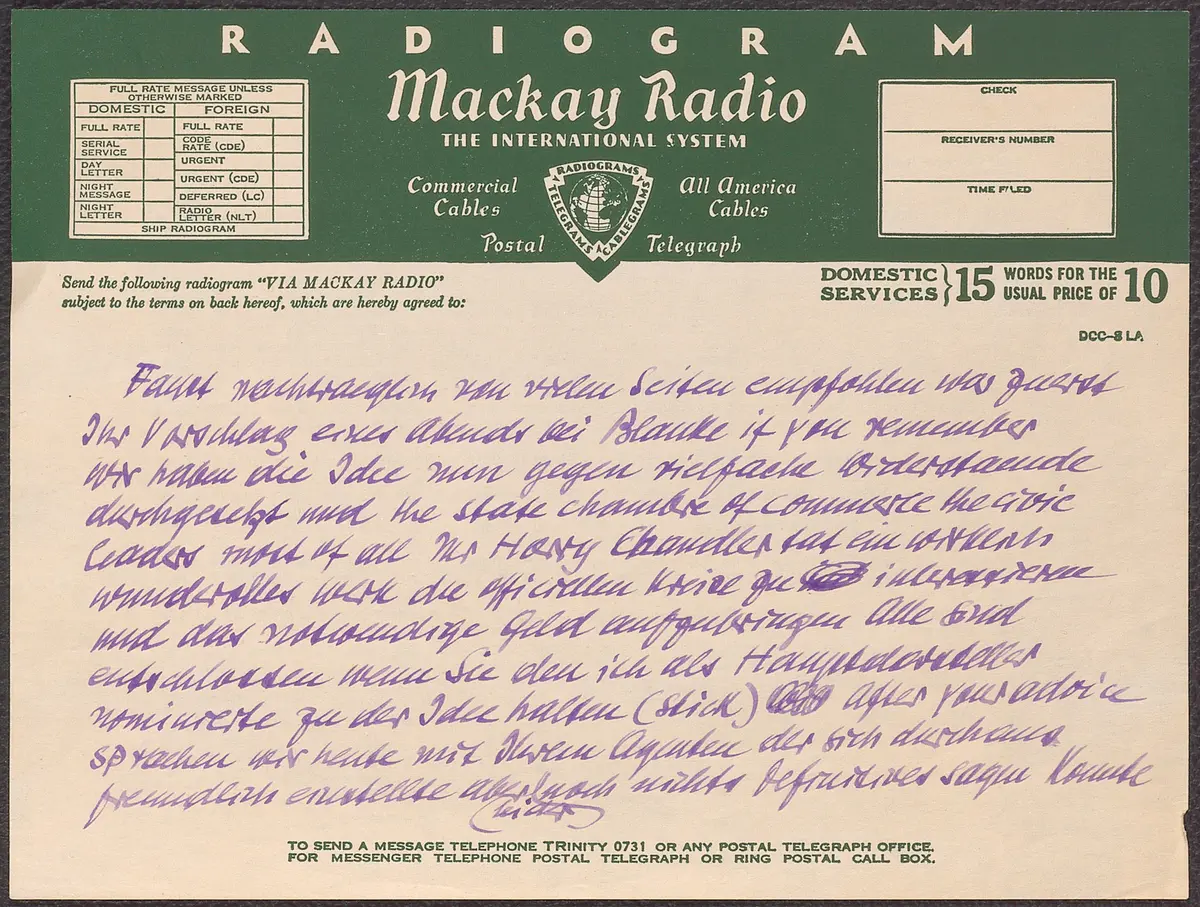 RADIOGRAM
Mackay Radio
THE INTERNATIONAL SYSTEM
FULL RATE MESSAGE UNLESS
OTHERWISE MARKED
DOMESTIC FOREIGN
FULL RATE FULL RATE
SERIAL SERVICE CODE RATE (CDE)
DAY LETTER URGENT
URGENT (CDE)
NIGHT MESSAGE DEFERRED (LC)
NIGHT LETTER RADIO LETTER (NLT)
SHIP RADIOGRAM
Commercial Cables
RADIOGRAMS TELEGRAMS CABLEGRAMS
All America Cables
Postal Telegraph
CHECK
RECEIVER'S NUMBER
TIME FILED
Send the following radiogram "VIA MACKAY RADIO"
subject to the terms on back hereof, which are hereby agreed to:
DOMESTIC SERVICES } 15 WORDS FOR THE USUAL PRICE OF 10
DCC-8 LA
Faust nachtraeglich von vielen Seiten empfohlen war zuerst
Ihr Vorschlag eines Abends bei Blanke if you remember
wir haben die Idee nun gegen vielfache Widerstaende
durchgesetzt und the state chambre of commerce the civic
leaders most of all Mr Harry Chandler tat ein wirklich
wundervolles werk die officiellen Kreise zu interessieren
und das notwendige Geld aufzubringen Alle sind
entschlossen wenn Sie den ich als Hauptdarsteller
nominierte zu der Idee halten (stick) After your advice
sprachen wir heute mit Ihrem Agenten der sich durchaus
freundlich einstellte aber noch nichts Definitives sagen konnte
(leider)
TO SEND A MESSAGE TELEPHONE TRINITY 0731 OR ANY POSTAL TELEGRAPH OFFICE.
FOR MESSENGER TELEPHONE POSTAL TELEGRAPH OR RING POSTAL CALL BOX.